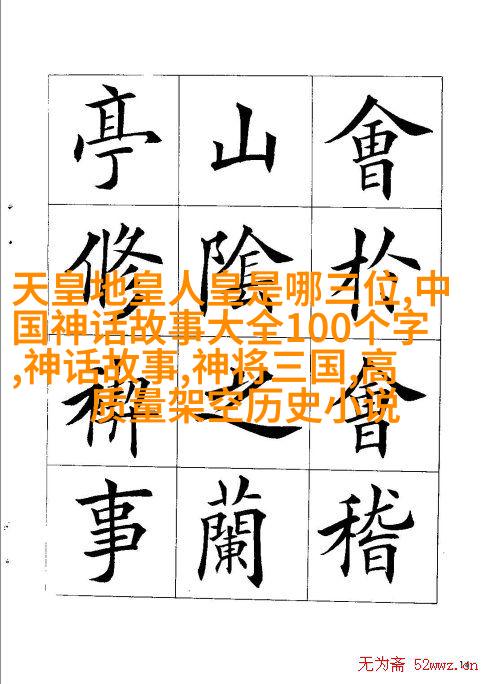 會扵會稽
山陰之蘭
亭修禊事
天皇地皇人皇是哪三位,中
国神话故事大全100个字
,神话故事,神将三国,高
质量架空历史小说
无为斋 52wwz.cn